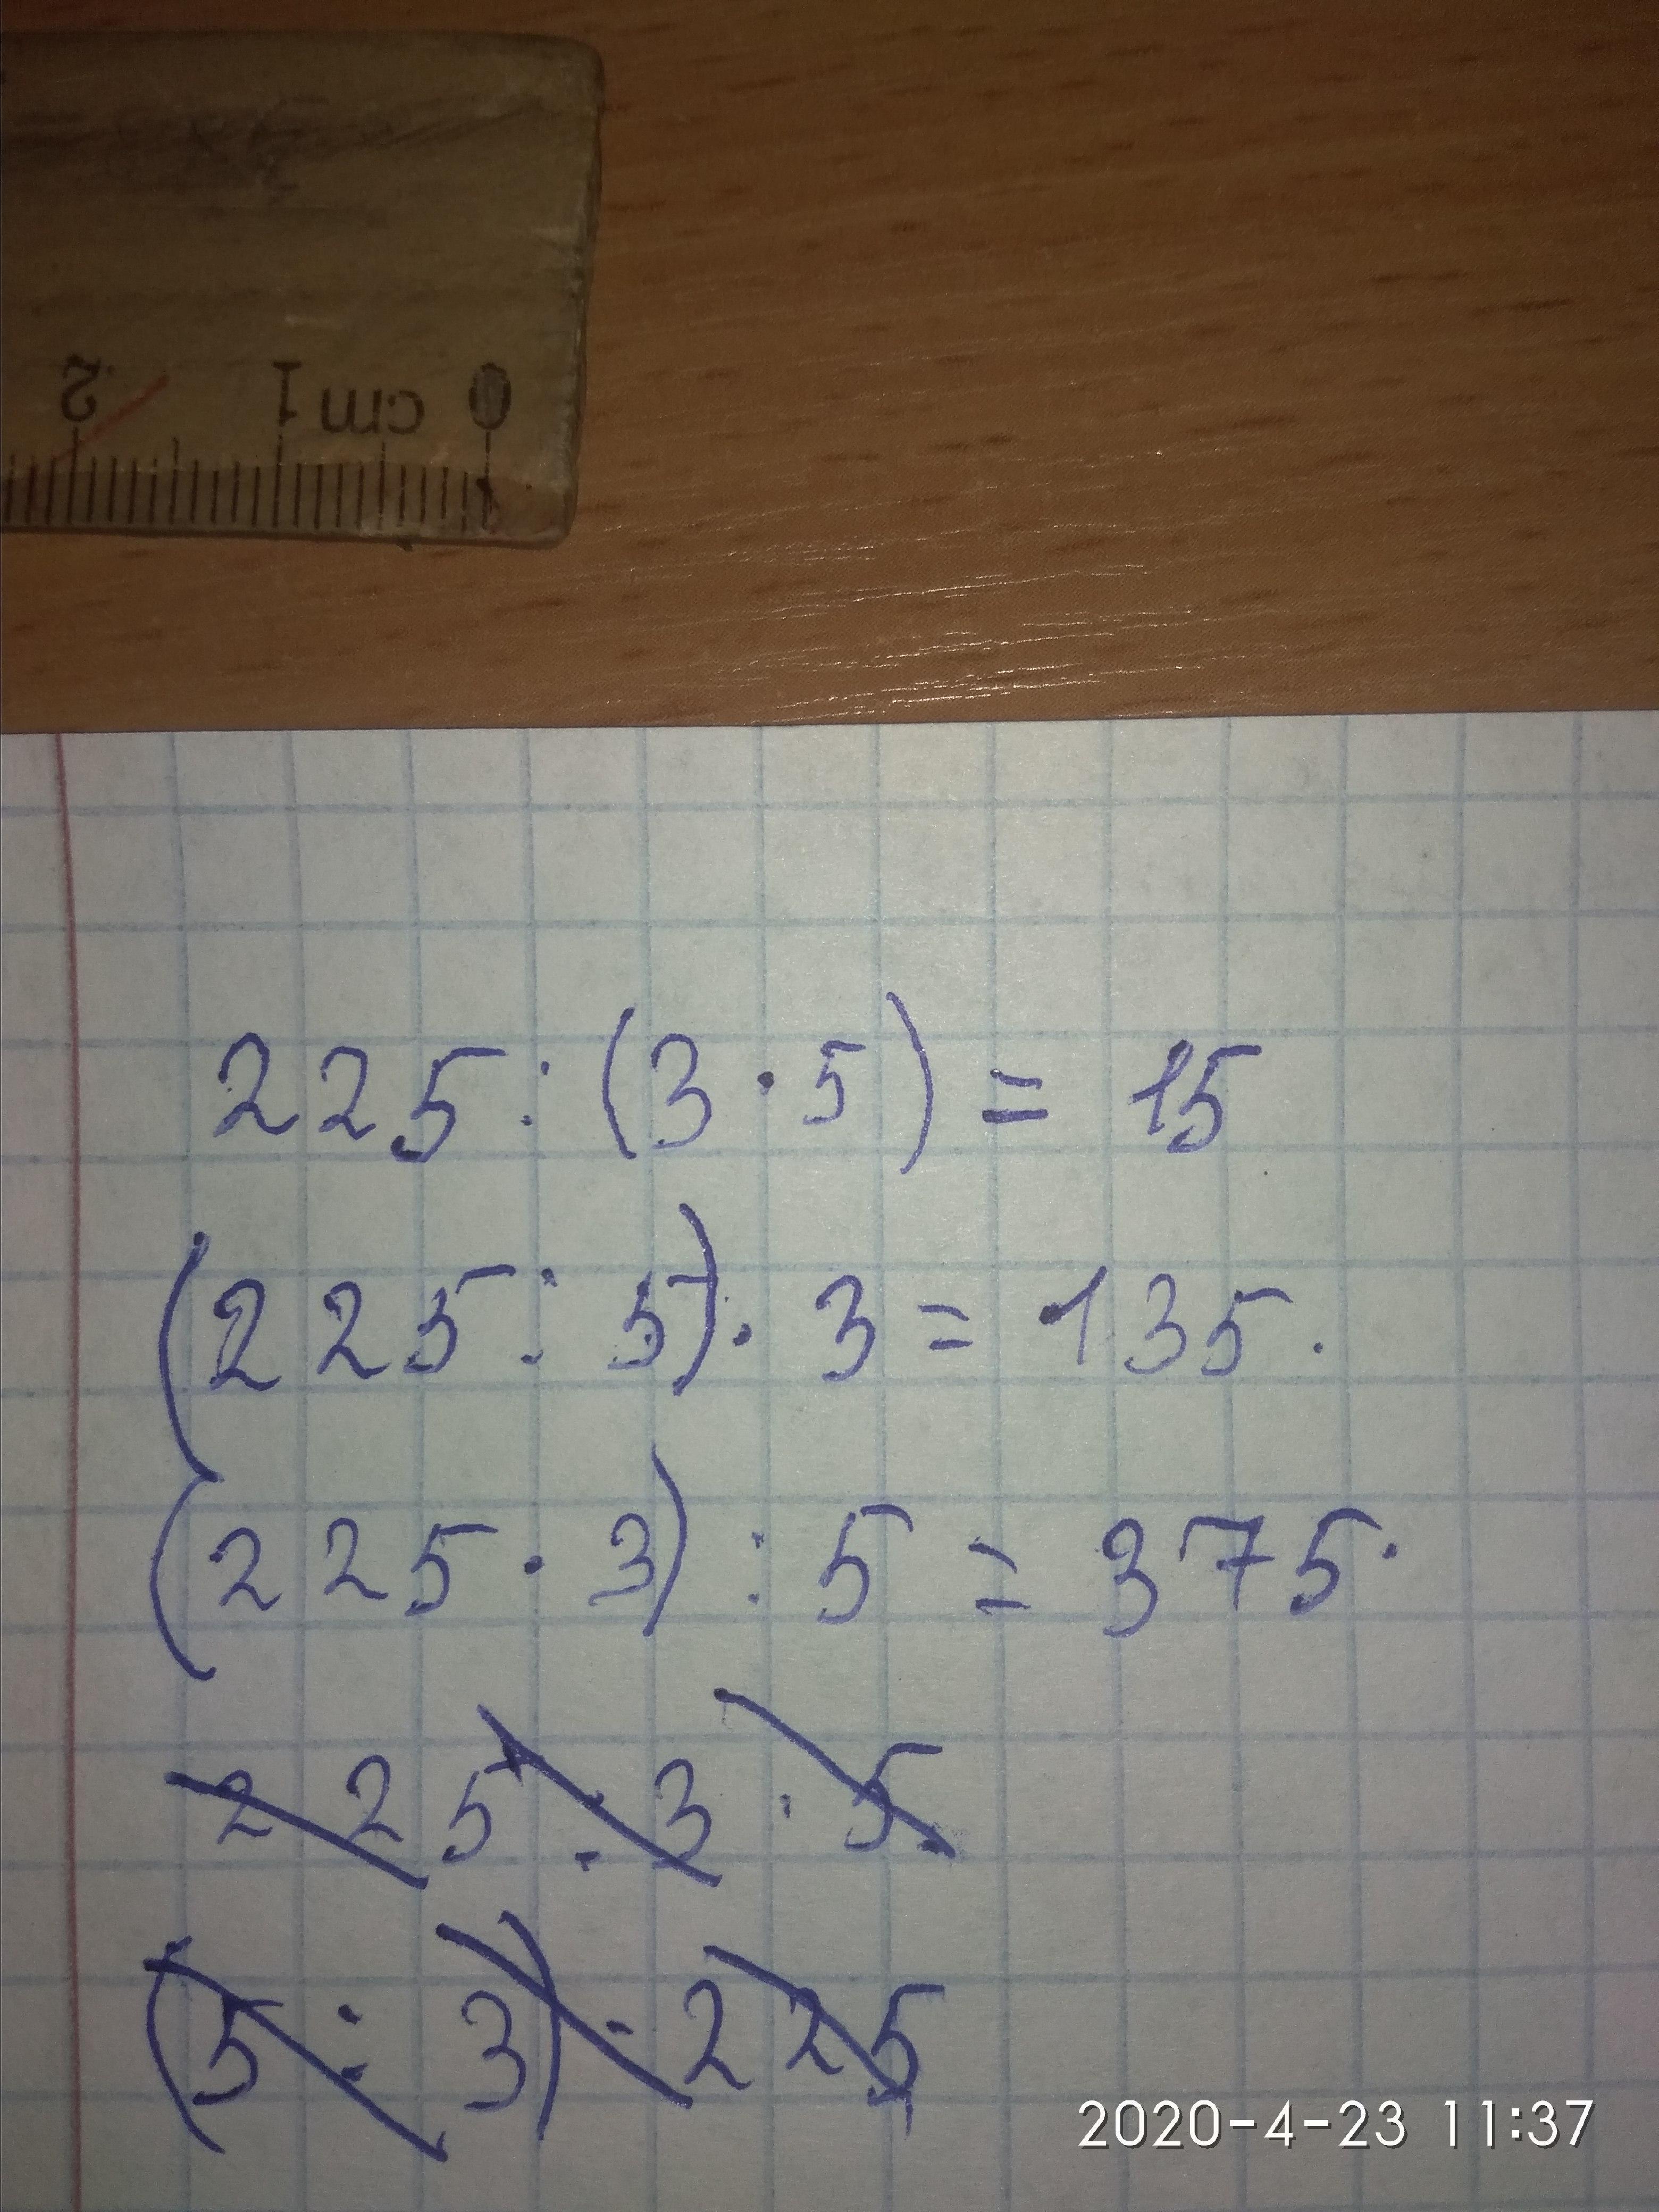 0 cm 1 2
225 : (3 · 5) = 15
(225 : 5) · 3 = 135.
(225 · 3) : 5 = 375.
225 : 3 · 5
(5 : 3) · 225
2020-4-23 11:37